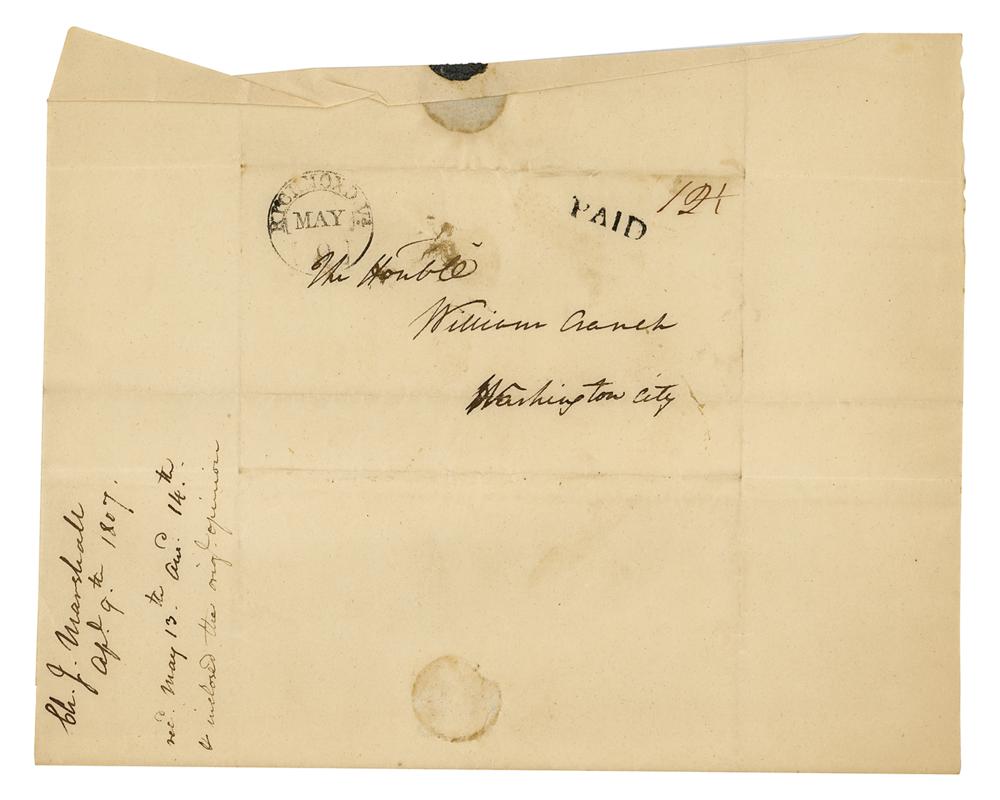 RICHMOND Va.
MAY
9
PAID
12½
The Honble
William Cranch
Washington City
Ch. J. Marshall
Apl. 9th 1807.
recd. May 13th ansd. 14th.
& inclosed the origl. opinion